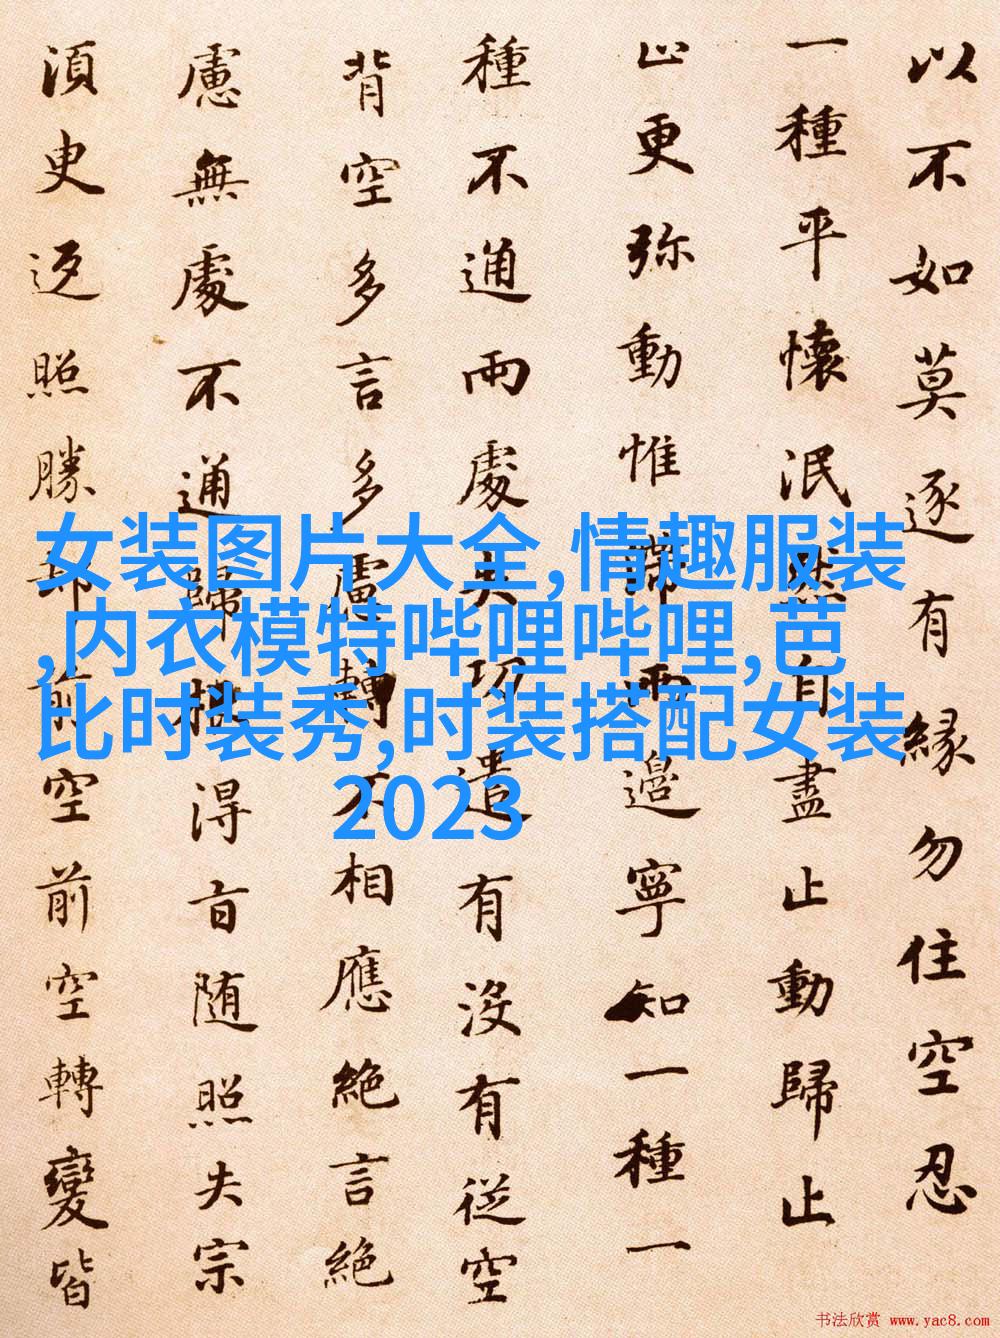 以不如莫逐有緣勿住空忍
一種平懷泯然自盡止動歸止
止更弥動惟滯兩邊寧知一種一
種不通兩處失功遣有沒有従空
背空多言多慮轉不相應絕言絕
慮無處不通歸根得旨随照失宗
湏臾返照勝却前空前空轉變皆
女装图片大全,情趣服装
,内衣模特哔哩哔哩,芭
比时装秀,时装搭配女装
2023
书法欣赏 www.yac8.com